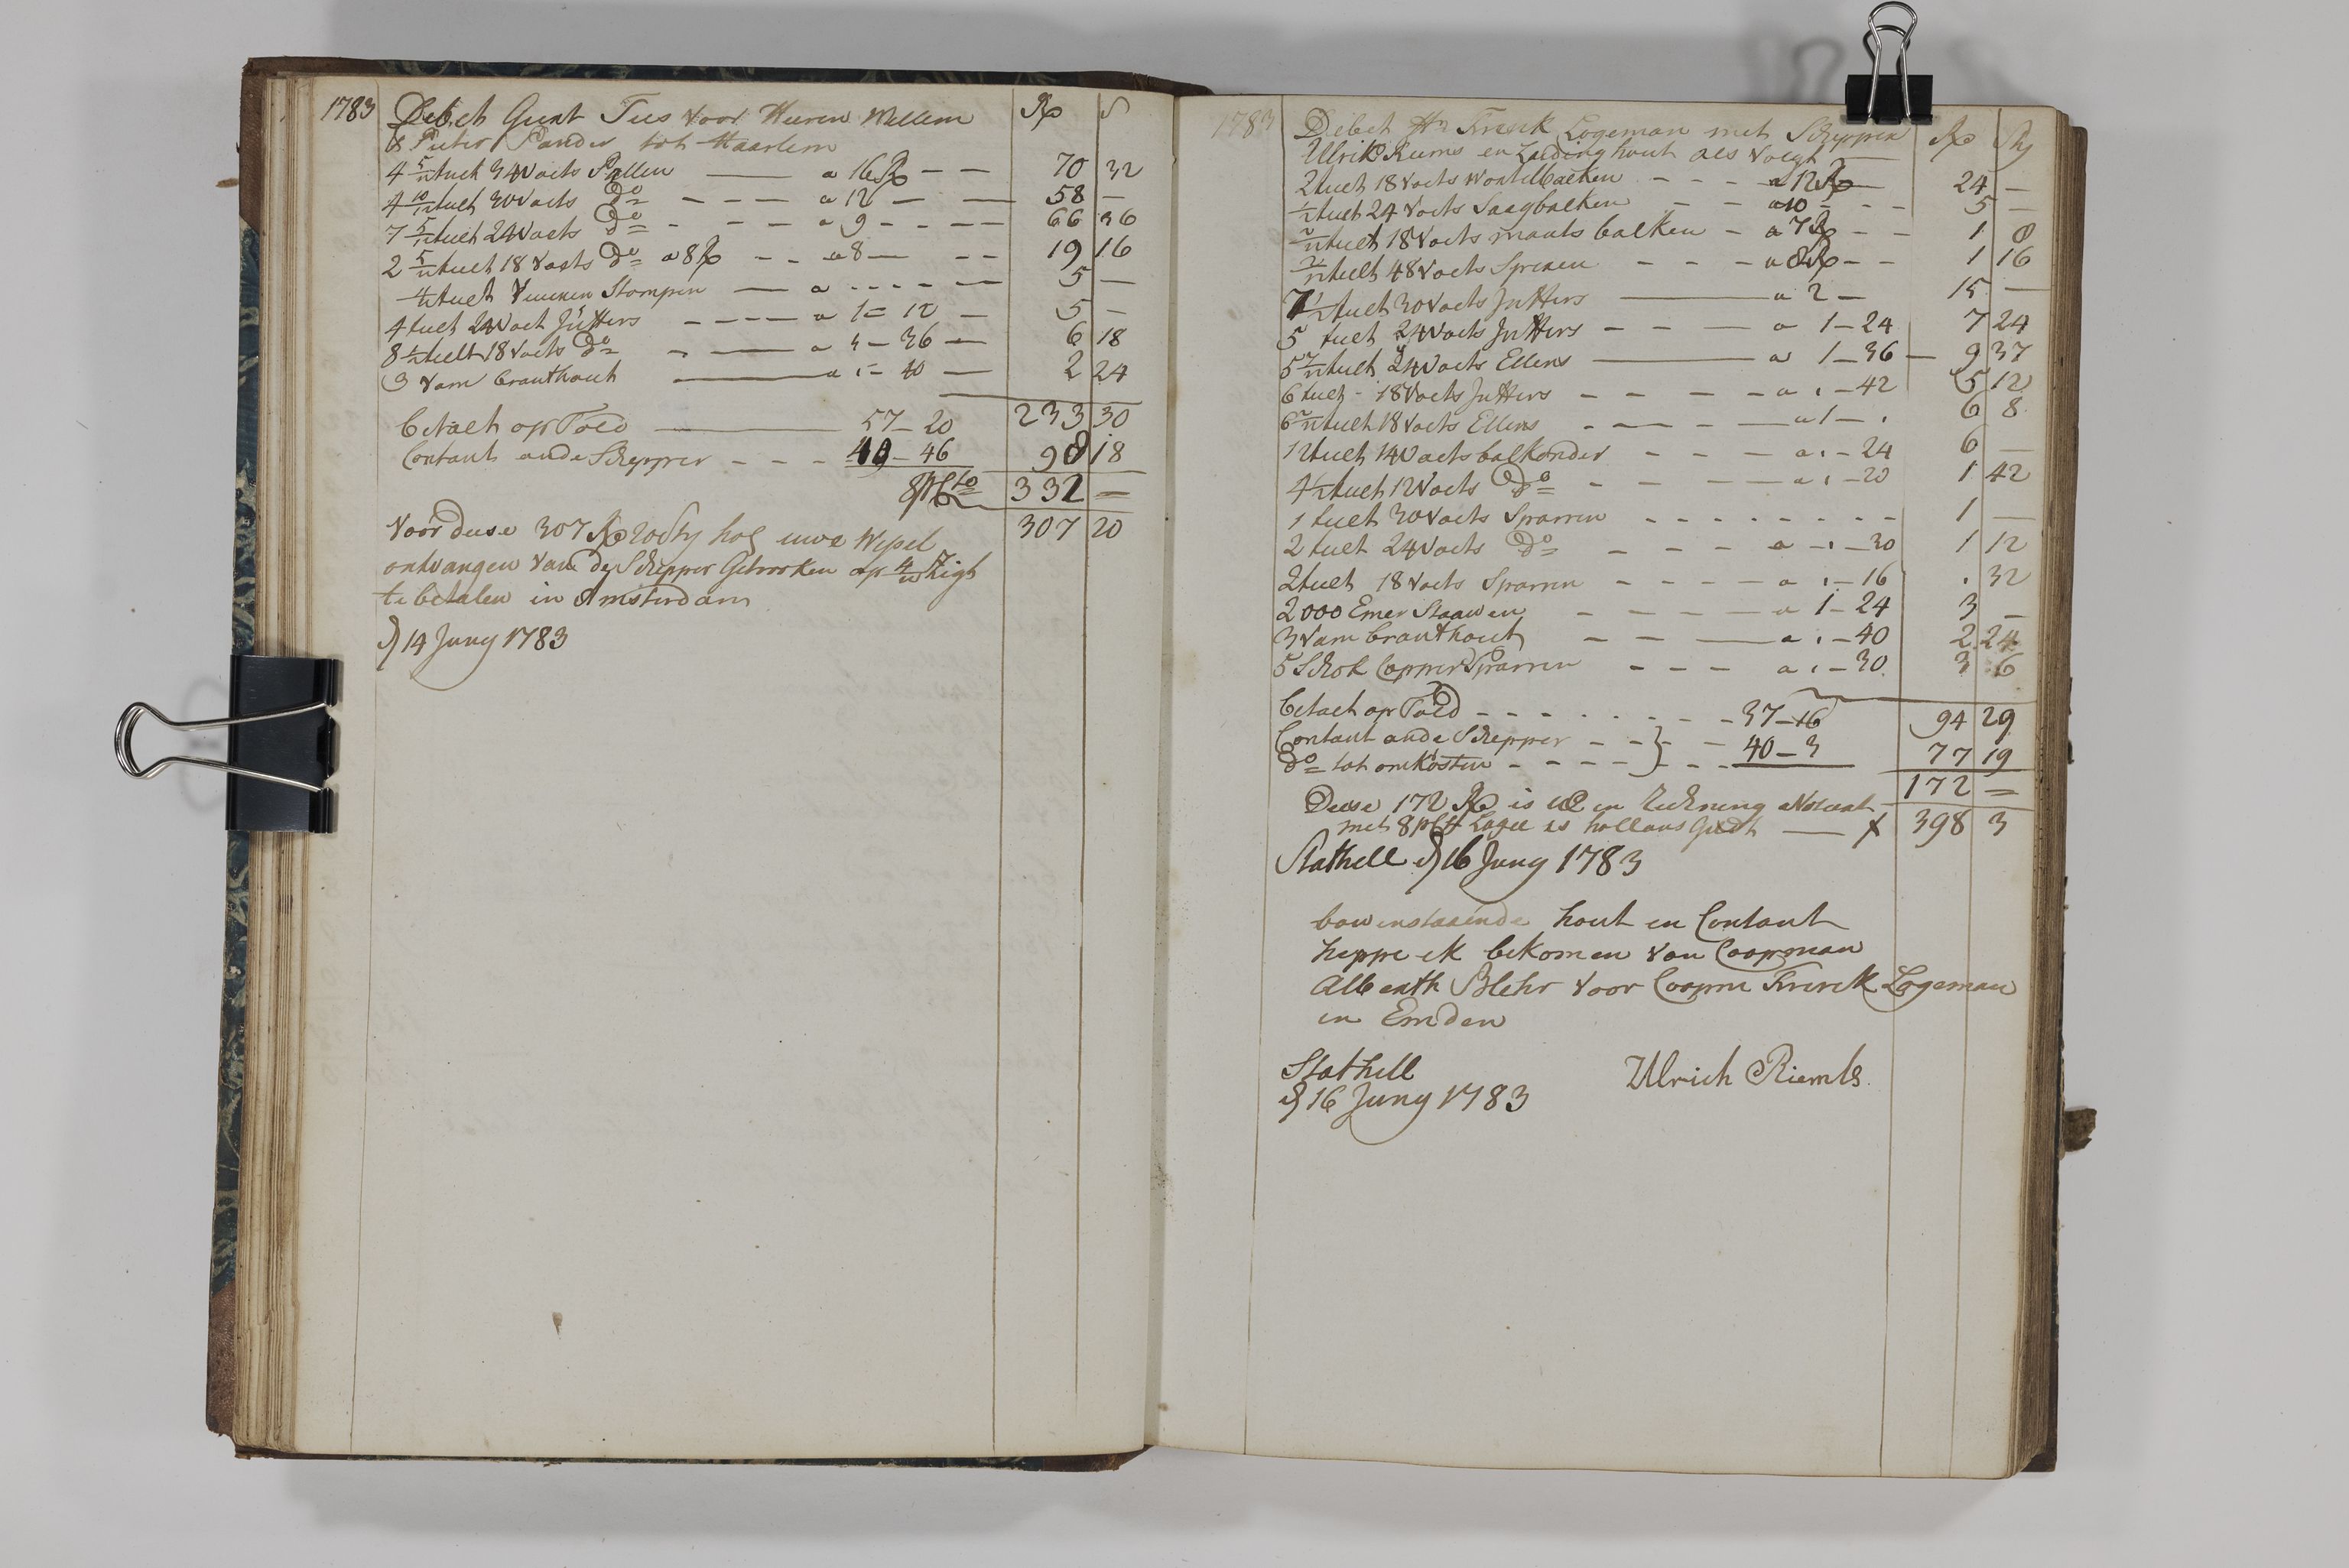 1783 Debet Gunt Tus voor Heeren Willem R S
& Pieter Pander tot Haarlem
4 5/12 tuelt 34 Voets Pallen — a 16 R - - 70 32
4 10/12 tuelt 30 Voets Do - - - a 12 — 58 —
7 5/12 tuelt 24 Voets Do - - - a 9 - - - 66 36
2 5/12 tuelt 18 Voets Do a 8 R - - a 8 — - - 19 16
tuelt Stompen — a - - - - 5 —
4 tuelt 24 Voet Jütters - - - - a 1 = 12 — 5 —
8 1/2 tuelt 18 Voets Do - — a : - 36 — 6 18
3 Vam branthout — a : - 40 — 2 24
233 30
betalt op Told — 57 - 20
Contant an de Schepper - - - 40 - 46 98 18
332 =
Voor deese 307 R 20 sty heb uwe Wesel 307 20
ontvangen van de Schepper Getrocken op
te betalen in Amsterdam
d 14 Juny 1783
1783 Debet Hr Frerck Logeman met Schepper R Sty
Ulrik Riems en Lading hout als volgt
2 tuelt 18 Voets Wontelbalken - - - a 12 R — 24 —
1/2 tuelt 24 Voets Saagbalken - - a 10 - - - 5 —
2/12 tuelt 18 Voets maats balken - a 7 R - - 1 8
2/12 tuelt 48 Voets Spieren - - - a 8 R - - 1 16
7 1/2 tuelt 30 Voets Jutters — a 2 — 15 —
5 tuelt 24 Voets Jutters - - — a 1 - 24 7 24
5 7/12 tuelt 24 Voets Ellens — a 1 - 36 — 9 37
6 tuelt - 18 Voets Jutters - - - - a : - 42 5 12
6 2/12 tuelt 18 Voets Ellens - - - — a 1 - . 6 8
12 tuelt 14 Voets balkonder - - - a : - 24 6 —
4 1/2 tuelt 12 Voets Do - - - — a : - 20 1 42
1 tuelt 30 Voets Sparren - - - - - - - - 1 —
2 tuelt 24 Voets Do - - - a - : - 30 1 12
2 tuelt 18 Voets Sparren - - - - a : - 16 . 32
2000 Emer Staawen - - - - a 1 - 24 3 —
3 Vam branthout - - — a : - 40 2 24
5 Schok Copper Sparren - - - a : - 30. 3 6
betalt op Told - - - - - - - 37 - 16 94 29
Contant an de Schepper - - } - - 40 - 3
Do tot onkosten - - - - } - - 77 19
172 =
Deese 172 R is in Rekening Notuat
met 8 Lagee is hollans Geldt — f 398 3
Stathell d 16 Juny 1783
bowenstaande hout en Contant
heppe ik bekomen van Coopman
Albenth Blehr voor Coopm Frerck Logeman
in Emden
Stathell Ulrich Riemts.
d 16 Juny 1783